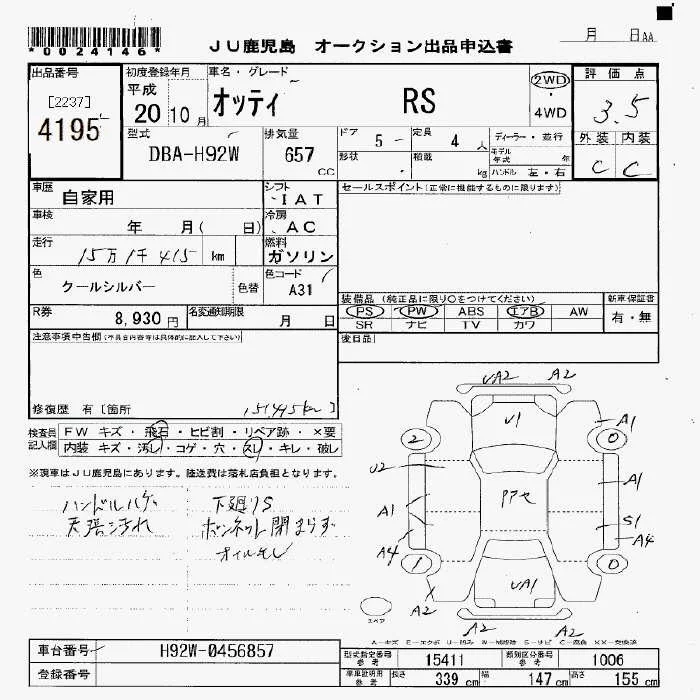 *0024146*
JU鹿児島 オークション出品申込書
月 日AA
出品番号
[2237]
4195
初度登録年月
平成
20 10 月
車名・グレード
オッティ RS
2WD
4WD
評価点
3.5
外装 内装
C C
型式
DBA-H92W
排気量
657
CC
ドア 5
形状
定員 4 人
積載 kg
ディーラー・並行
モデル年式 年
ハンドル 左・右
車歴 自家用
シフト
IAT
セールスポイント(正常に機能するものに限ります)
車検 年 月( 日)
冷房
AC
走行 15万1千415 km
燃料
ガソリン
色 クールシルバー 色替
色コード
A31
装備品 (純正品に限り○をつけてください)
新車保証書
PS PW ABS エアB AW
有・無
SR ナビ TV カワ
R券 8,930 円
名変通知期限 月 日
後日品
注意事項申告欄
修復歴 有[箇所 ]
検査員
記入欄
FW キズ・飛石・ヒビ割・リペア跡・×要
内装 キズ・汚レ・コゲ・穴・スレ・キレ・破レ
※現車はJU鹿児島にあります。陸送費は落札店負担となります。
ハンドルハゲ
天張汚れ
下廻りS
ボンネット閉まらず
オイルモレ
A2
A2
U1
A1
2
0
U2
A1
A1
S1
A4
A4
1
0
A1
X
A2
A2
A2
スペア
車台番号 H92W-0456857
登録番号
型式指定番号
参考
15411
類別区分番号
参考
1006
車庫証明用
参考
長さ 339 cm 幅 147 cm 高さ 155 cm